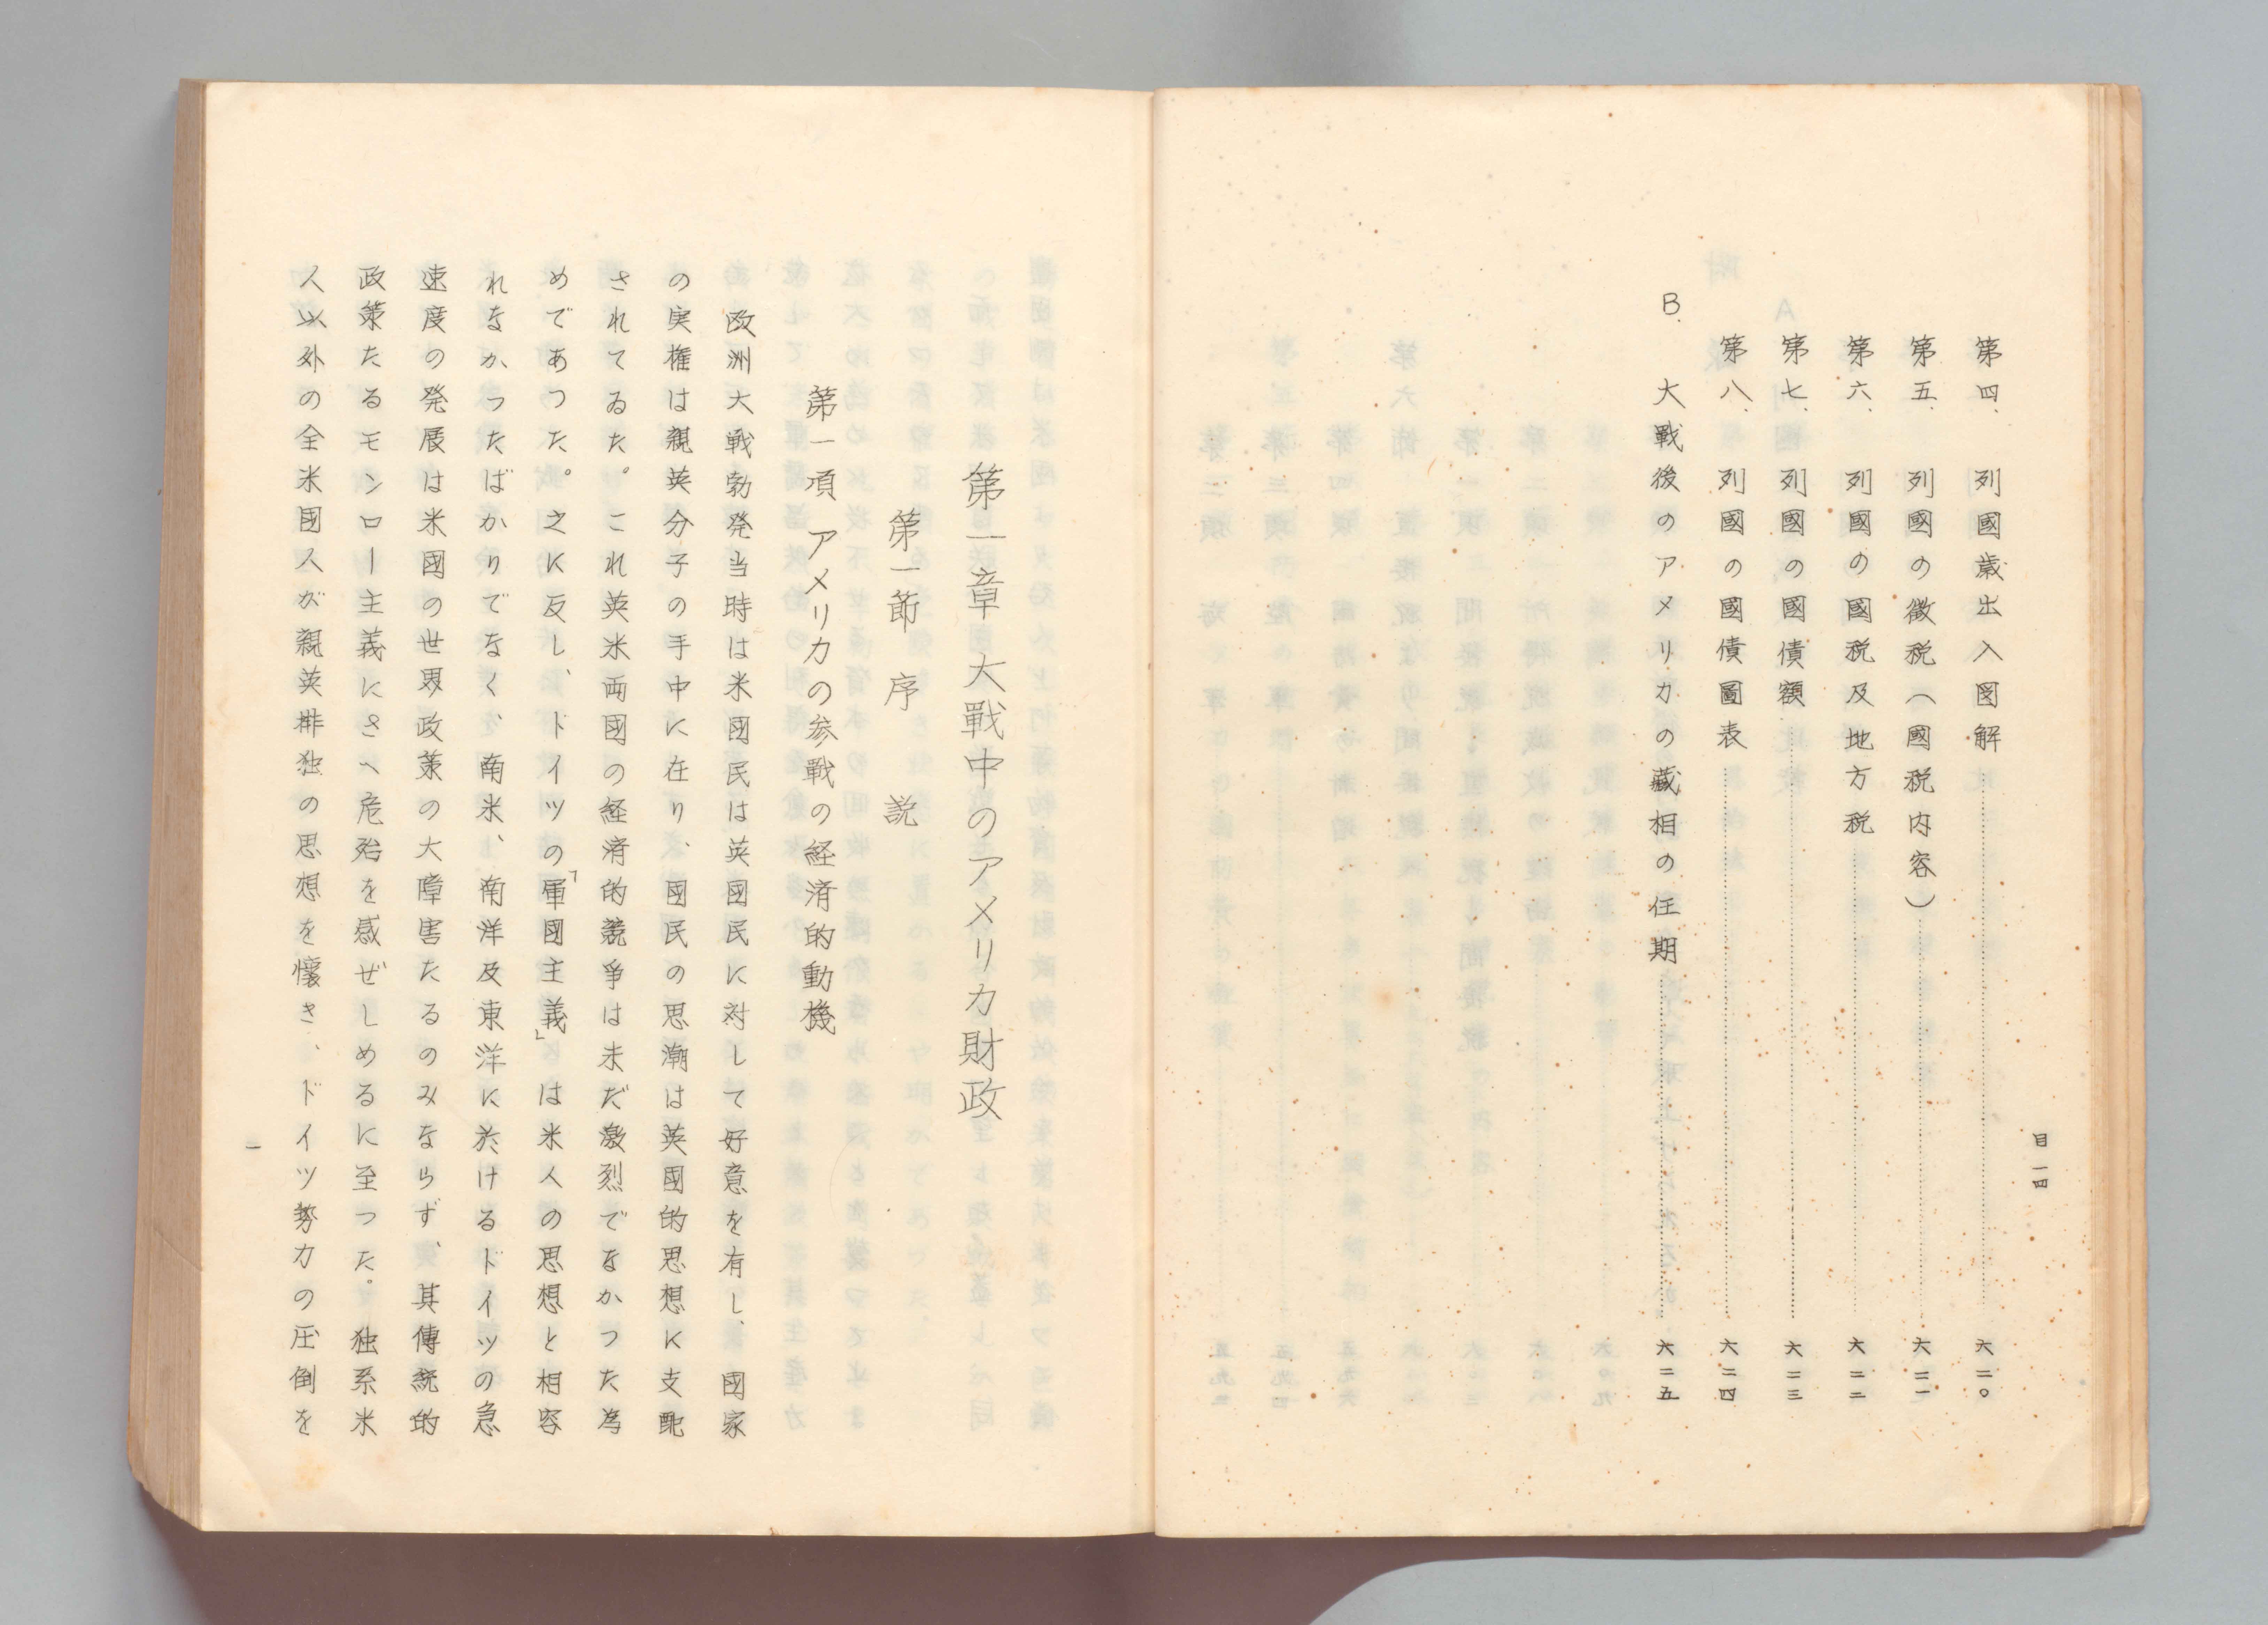 目一四
第四、列國歳出入図解……六二〇
第五、列國の徴税（國税内容）……六二一
第六、列國の國税及地方税……六二二
第七、列國の國債額……六二三
第八、列國の國債圖表……六二四
B、大戰後のアメリカの藏相の任期……六二五
第一章 大戰中のアメリカ財政
第一節 序説
第一項 アメリカの参戰の経済的動機
欧洲大戰勃発当時は米國民は英國民に対して好意を有し、國家
の実権は親英分子の手中に在り、國民の思潮は英國的思想に支配
されてゐた。これ英米両國の経済的競争は未だ激烈でなかつた為
めであつた。之に反し、ドイツの「軍國主義」は米人の思想と相容
れなかつたばかりでなく、南米、南洋及東洋に於けるドイツの急
速度の発展は米國の世界政策の大障害たるのみならず、其傳統的
政策たるモンロー主義にさへ危殆を感ぜしめるに至つた。独系米
人以外の全米國人が親英排独の思想を懷き、ドイツ勢力の圧倒を
一